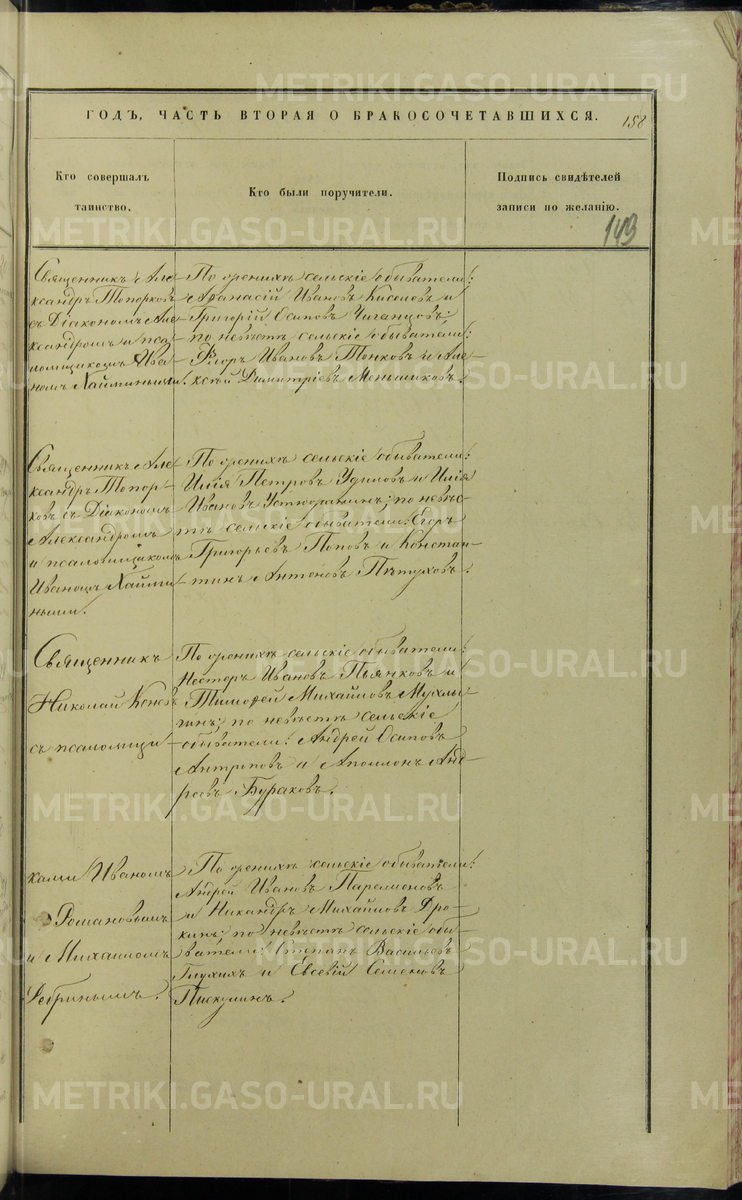 ГОДЪ, ЧАСТЬ ВТОРАЯ О БРАКОСОЧЕТАВШИХСЯ.
158
Кто совершалъ
таинство.
Кто были поручители.
Подпись свидѣтелей
записи по желанію.
149
Священникъ Але-
ксандръ Топорковъ
съ Діакономъ Але-
ксандромъ и пса-
ломщикомъ Ива-
номъ Хайминымъ.
По женихѣ сельскіе обыватели:
Аѳанасій Ивановъ и
Григорій Осиповъ Чиганцовъ;
по невѣстѣ сельскіе обыватели:
Ѳедоръ Ивановъ Тонковъ и Але-
ксѣй Димитріевъ Меньшиковъ.
Священникъ Але-
ксандръ Топор-
ковъ съ Діакономъ
Александромъ
и псаломщикомъ
Иваномъ Хайми-
нымъ.
По женихѣ сельскіе обыватели:
Илія Петровъ Удиловъ и Илія
Ивановъ Устюжанинъ; по невѣс-
тѣ сельскіе обыватели: Егоръ
Григорьевъ Поповъ и Констан-
тинъ Антоновъ Пѣтуховъ.
Священникъ
Николай Коневъ
съ псаломщи-
По женихѣ сельскіе обыватели:
Несторъ Ивановъ Пьянковъ и
Тимоѳей Михайловъ Мухлы-
нинъ; по невѣстѣ сельскіе
обыватели: Андрей Осиповъ
Антроповъ и Аполлонъ Анд-
реевъ Бураковъ.
ками Иваномъ
Романовымъ
и Михаиломъ
Ребринымъ.
По женихѣ сельскіе обыватели:
Андрей Ивановъ Парамоновъ
и Никандръ Михайловъ Дро-
кинъ; по невѣстѣ сельскіе обы-
ватели: Степанъ Васильевъ
Глухихъ и Евсевій Семеновъ
Пискулинъ.
METRIKI.GASO-URAL.RU
METRIKI.GASO-URAL.RU
METRIKI.GASO-URAL.RU
METRIKI.GASO-URAL.RU
METRIKI.GASO-URAL.RU
METRIKI.GASO-URAL.RU
METRIKI.GASO-URAL.RU
METRIKI.GASO-URAL.RU